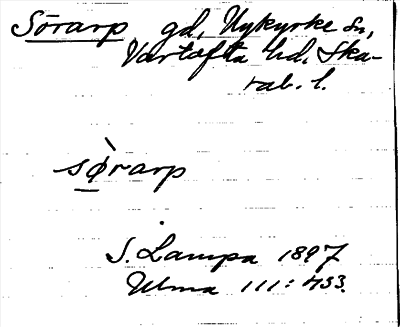 Sörarp gd, Nykyrke sn,
Vartofta hd. Ska-
rab. l.
sø̀rarp
S. Lampa 1897
Ulma 111:433.